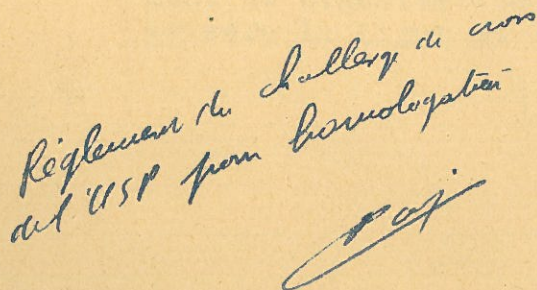 Règlement du challenge de cross
de l'USP pour homologation